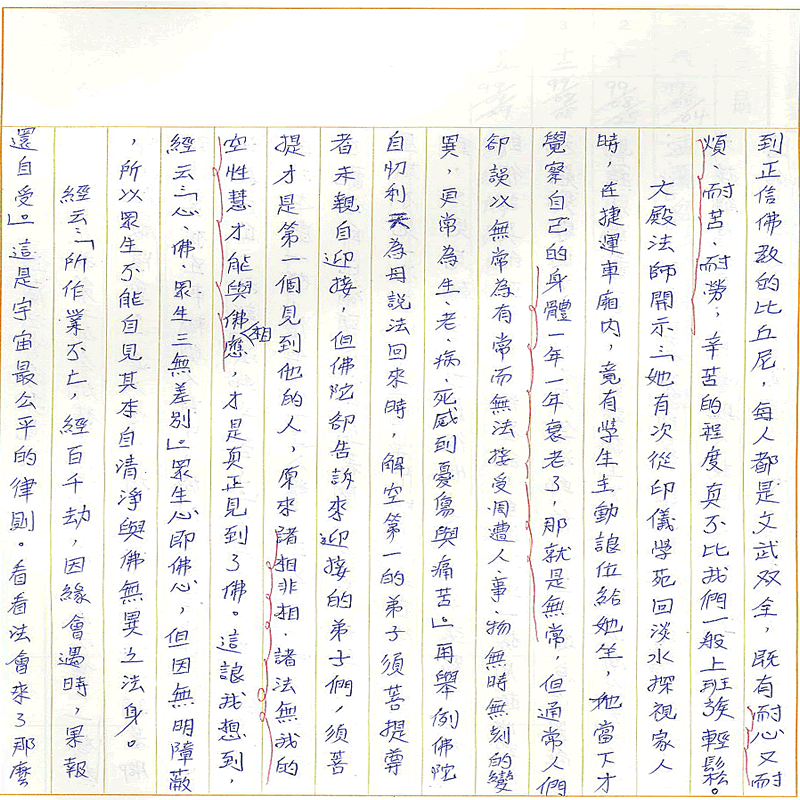 到正信佛教的比丘尼，每人都是文武双全，既有耐心又耐
煩、耐苦、耐勞，辛苦的程度真不比我們一般上班族輕鬆。
大殿法師開示：「她有次從印儀學苑回淡水探視家人
時，在捷運車廂內，竟有學生主動讓位給她坐，她當下才
覺察自己的身體一年一年衰老了，那就是無常，但通常人們
卻誤以無常為有常而無法接受周遭人、事、物無時無刻的變
異，更常為生、老、病、死感到憂傷與痛苦」。再舉例佛陀
自忉利天為母說法回來時，解空第一的弟子須菩提尊
者未親自迎接，但佛陀卻告訴來迎接的弟子們，須菩
提才是第一個見到他的人，原來諸相非相．諸法無我的
空性慧才能與佛相應，才是真正見到了佛。這讓我想到，
經云：「心、佛、眾生三無差別」。眾生心即佛心，但因無明障蔽
，所以眾生不能自見其本自清淨與佛無異之法身。
經云：「所作業不亡，經百千劫，因緣會遇時，果報
還自受」。這是宇宙最公平的律則。看看法會來了那麼